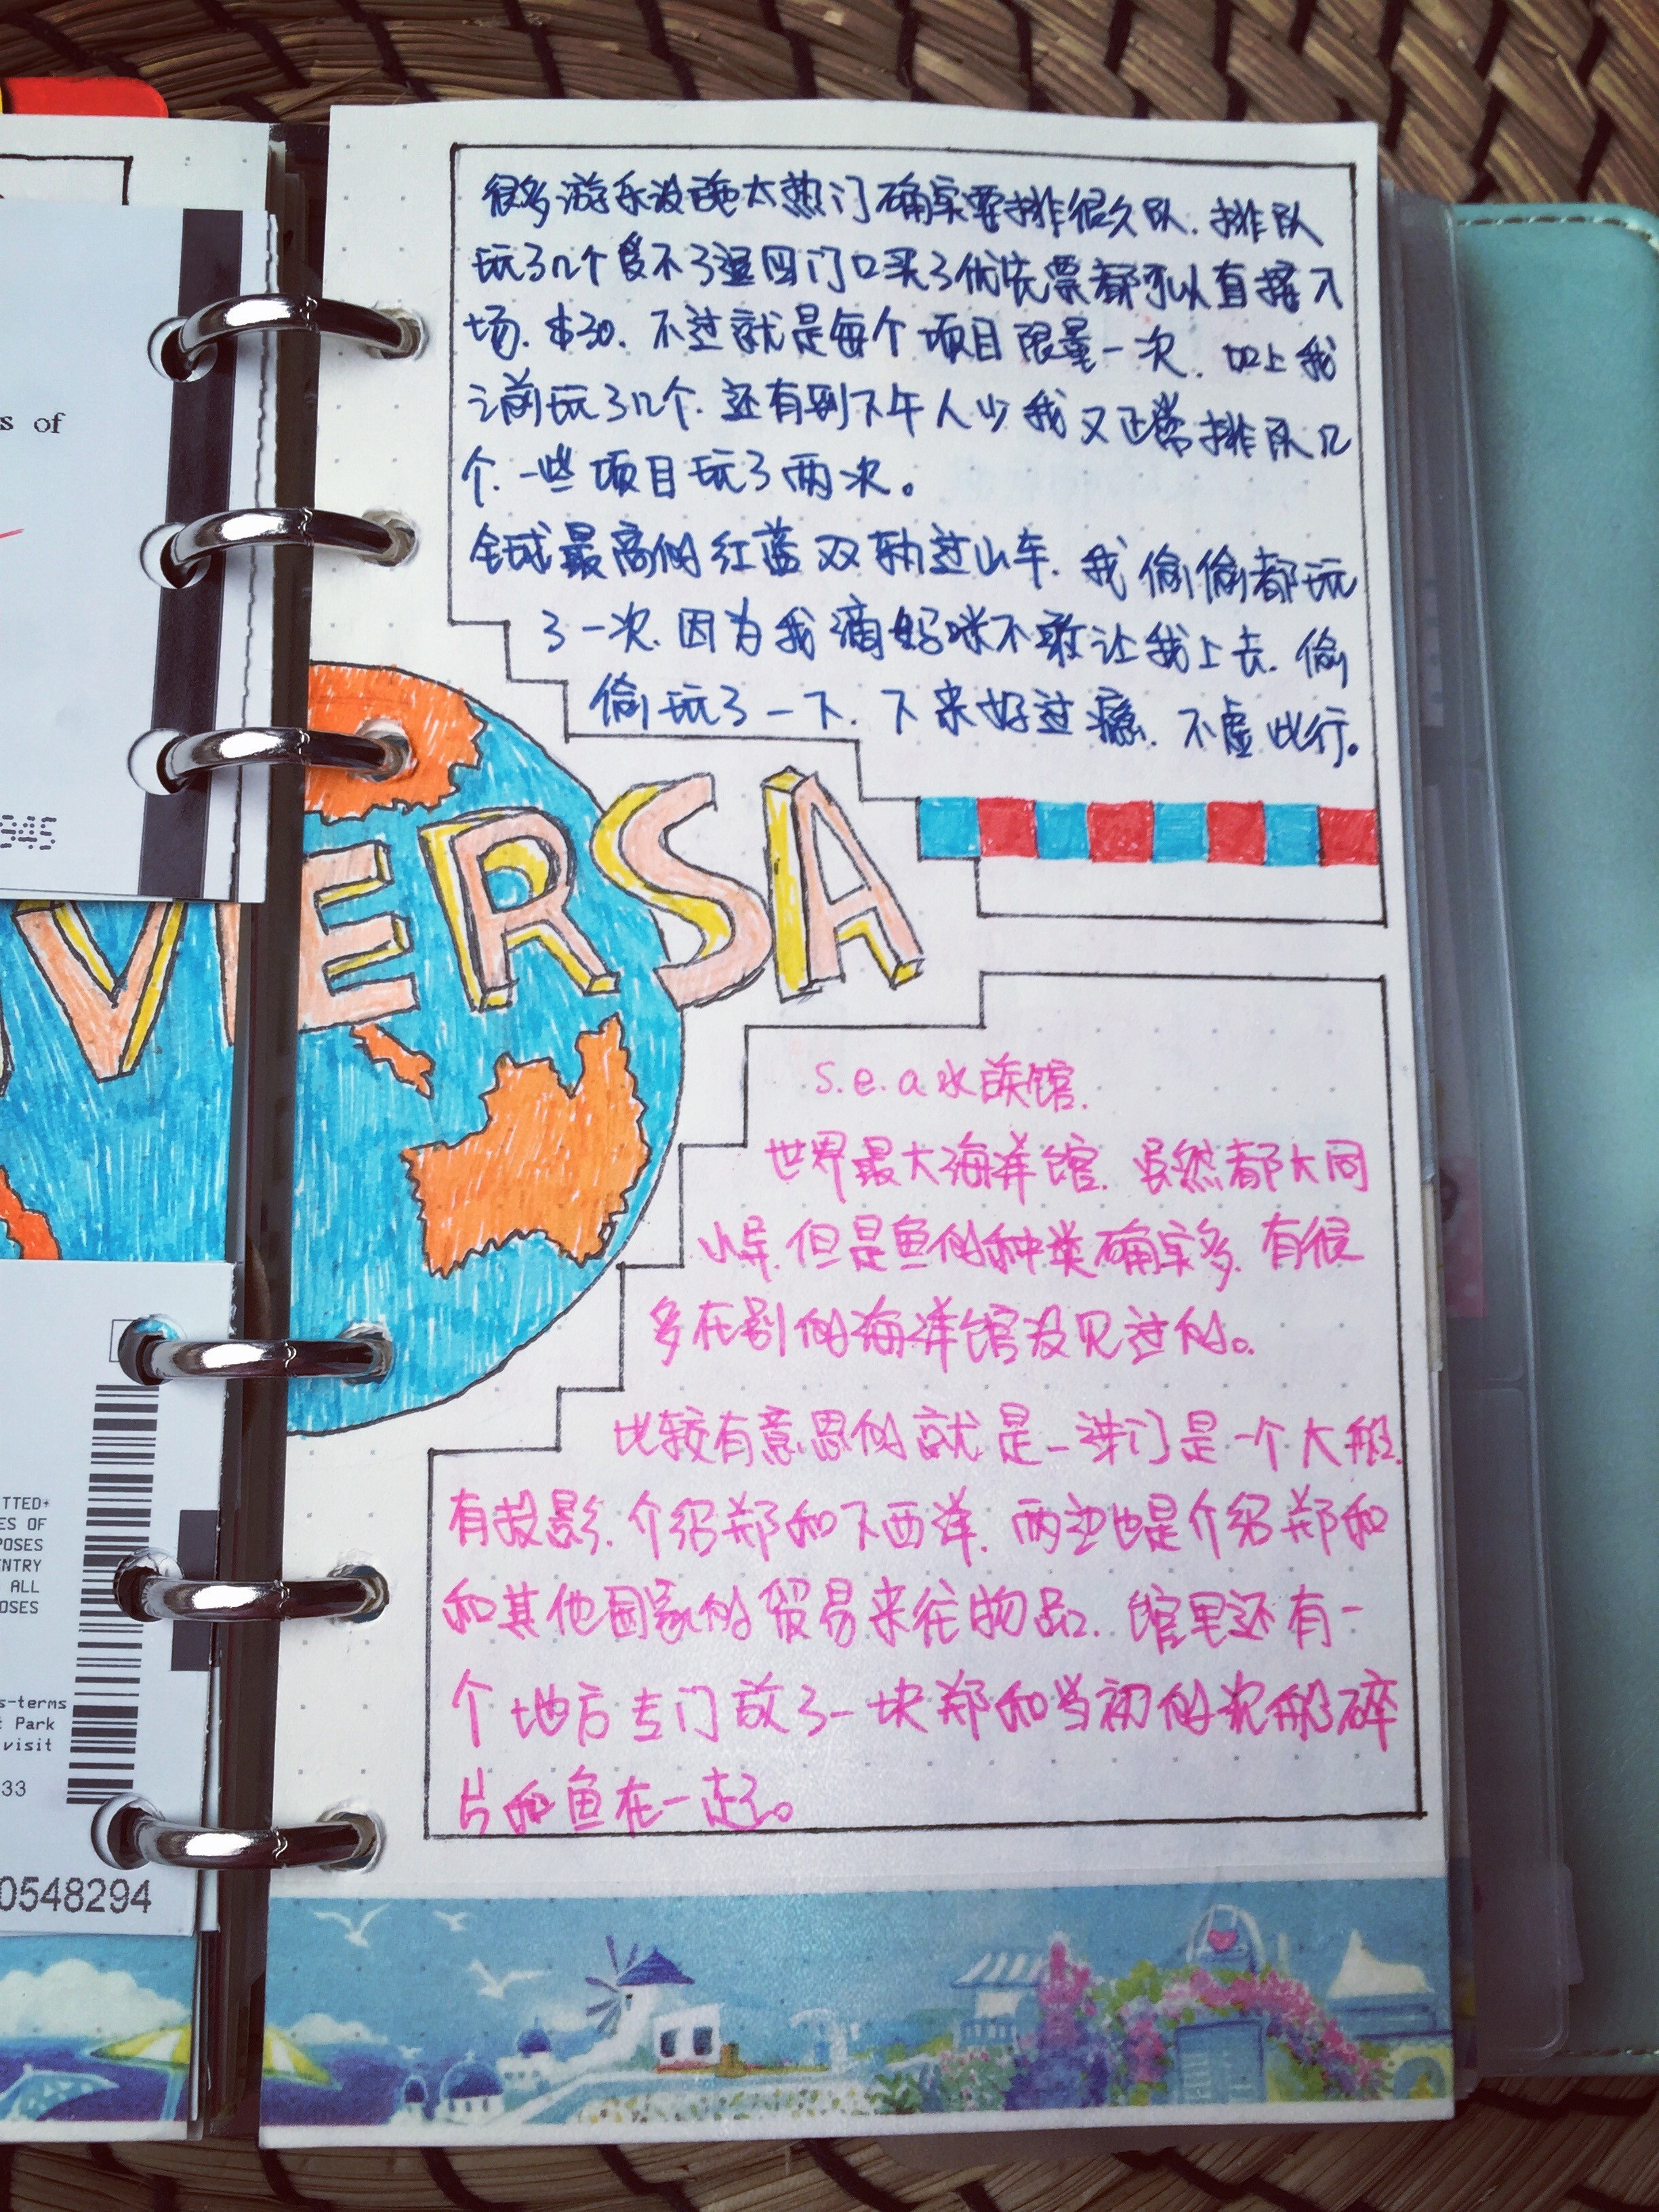 s of
945
TTED+
ES OF
POSES
ENTRY
ALL
OSES
s-terms
t Park
visit
33
0548294
VERSA
很多游乐设施太热门确实要排很久队.排队
玩了几个受不了返回门口买了优先票都可以直接入
场.$30.不过就是每个项目限量一次.加上我
之前玩了几个.还有到下午人少我又正常排队几
个.一些项目玩了两次。
全球最高的红蓝双轨过山车.我偷偷都玩
了一次.因为我滴妈咪不敢让我上去.偷
偷玩了一下.下来好过瘾.不虚此行。
S.e.a水族馆.
世界最大海洋馆.虽然都大同
小异.但是鱼的种类确实多.有很
多在别的海洋馆没见过的。
比较有意思的就是一进门是一个大船.
有投影.介绍郑和下西洋.两边也是介绍郑和
和其他国家的贸易来往物品.馆里还有一
个地方专门放了一块郑和当初的沉船碎
片和鱼在一起。